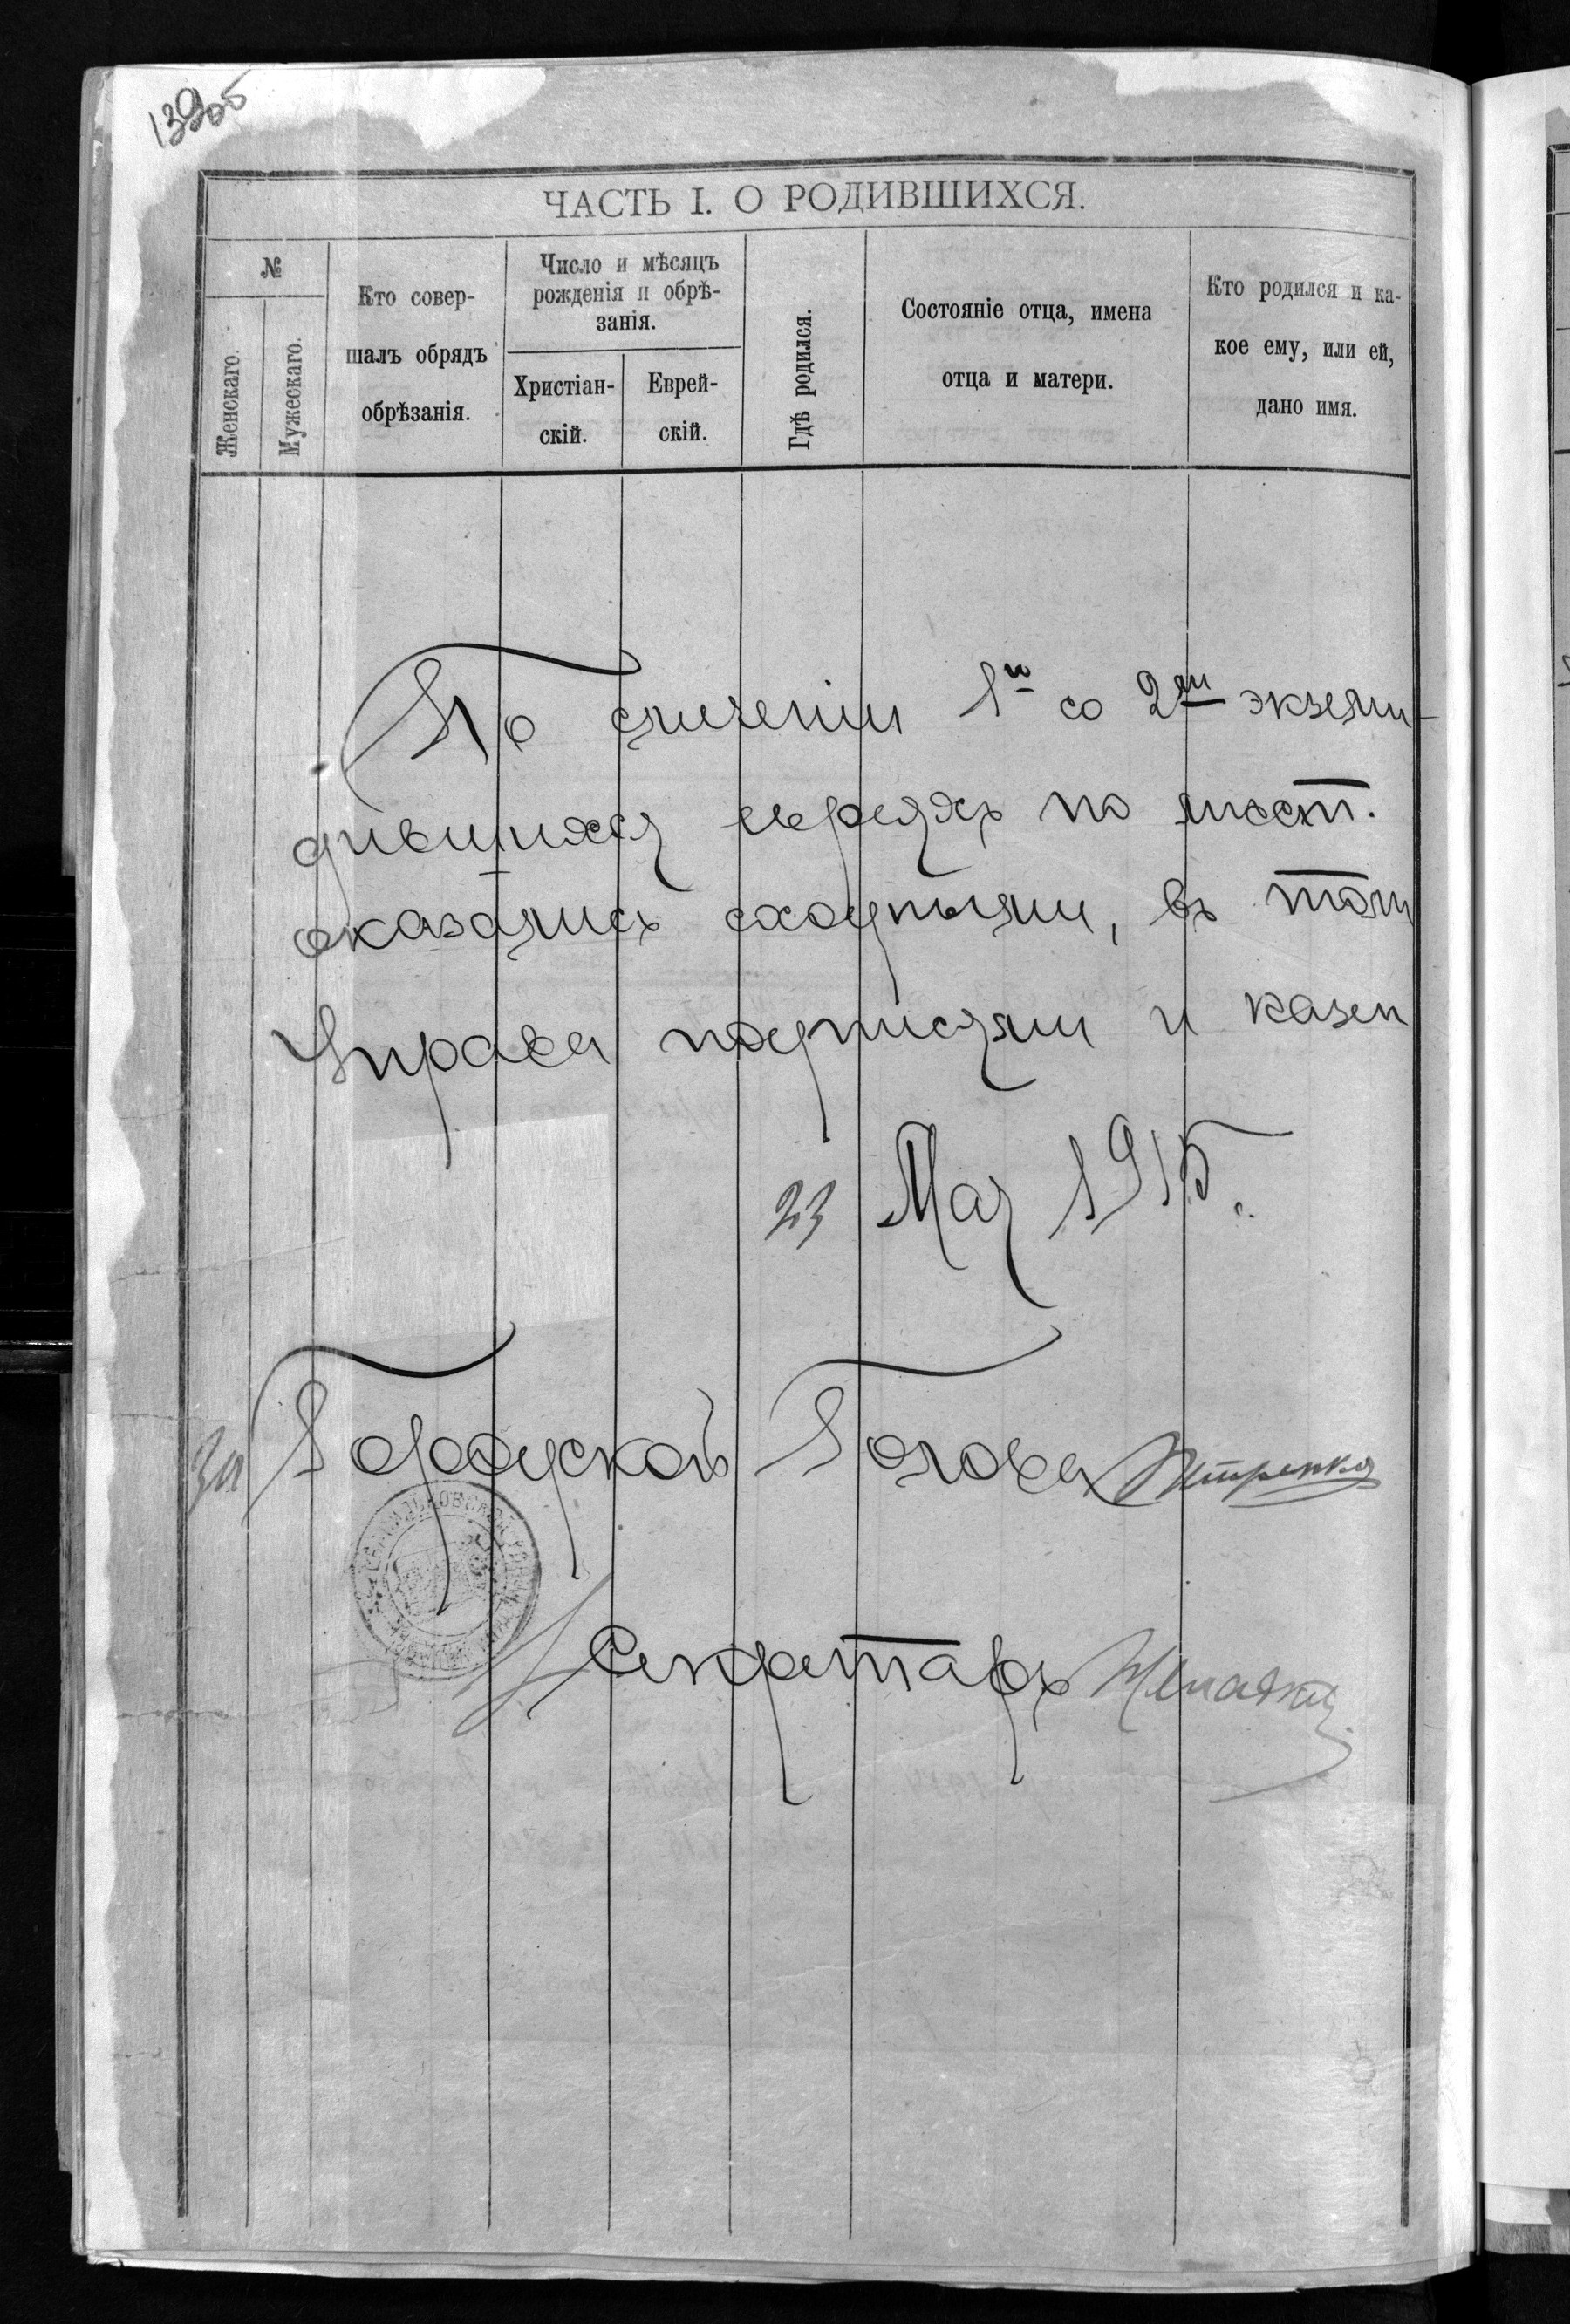 139об
ЧАСТЬ I. О РОДИВШИХСЯ.
№
Женскаго.
Мужескаго.
Кто совер-
шалъ обрядъ
обрѣзанія.
Число и мѣсяцъ
рожденія и обрѣ-
занія.
Христіан-
скій.
Еврей-
скій.
Гдѣ родился.
Состояніе отца, имена
отца и матери.
Кто родился и ка-
кое ему, или ей,
дано имя.
По сличеніи 1го со 2мъ экземп-
дившихся евреяхъ по мѣст.
оказались сходными, въ томъ
Управа подписями и казен
23 Мая 1915 г.
За Городской Голова Петренко
Секретарь